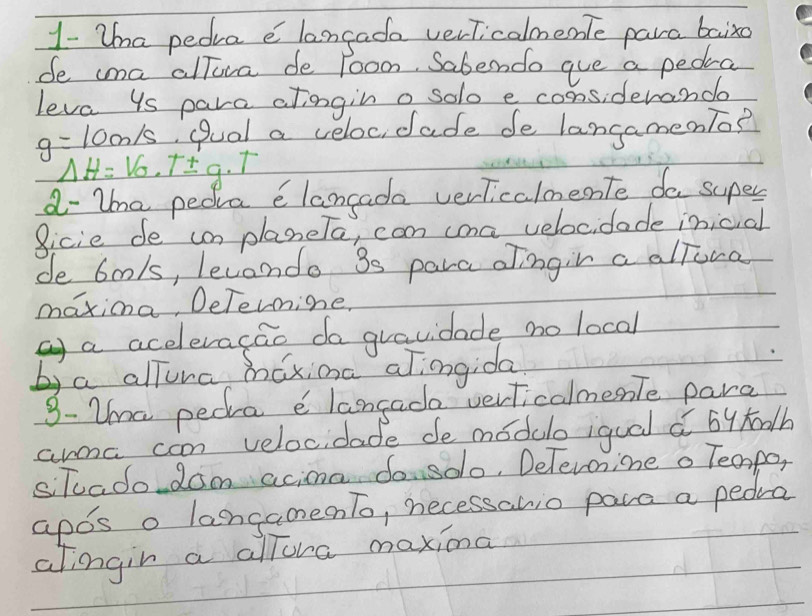 1- Uma pedra é lançada verticalmente para baixo
de uma altura de 100m. Sabendo que a pedra
leva 4s para atingir o solo e considerando
g=10m/s. Qual a velocidade de lançamento?
ΔH = V0.T ± g.T
2- Uma pedra é lançada verticalmente da super
ficie de um planeta, com uma velocidade inicial
de 6m/s, levando 3s para atingir a altura
máxima. Determine.
a) a aceleração da gravidade no local
b) a altura máxima atingida.
3- Uma pedra é lançada verticalmente para
arma com velocidade de módulo igual á 54 km/h
situado 20m acima do solo. Determine o Tempo,
após o lançamento, necessario para a pedra
atingir a altura maxíma